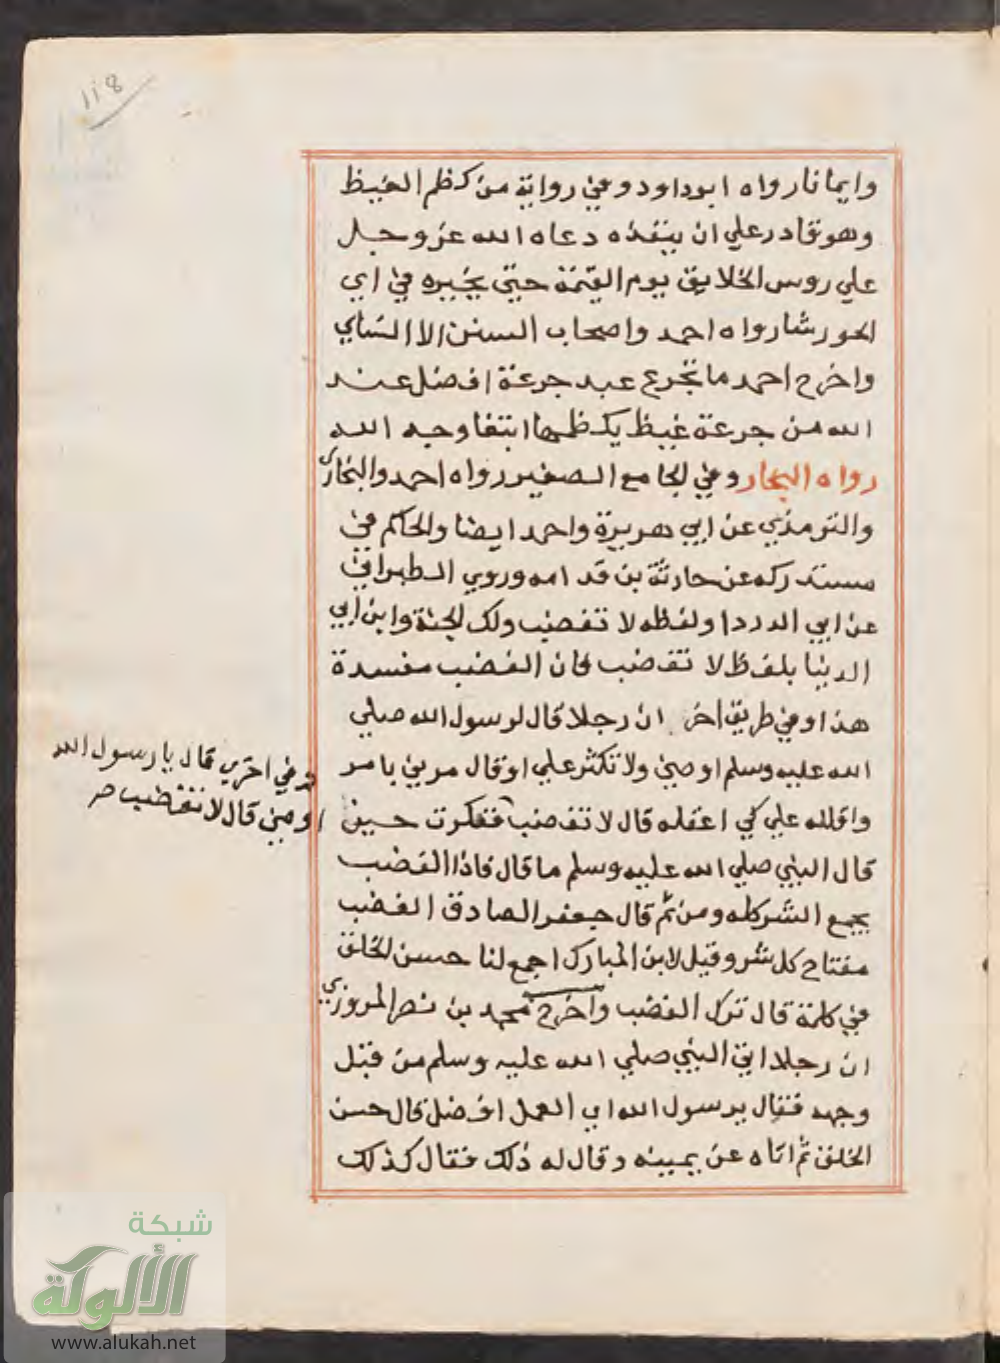 118
وايمانا رواه ابوداود وفي رواية من كظم الغيظ
وهو قادر علي ان ينفذه دعاه الله عز وجل
علي روس الخلايق يوم القيمة حتي يخيره في اي
الحور شا رواه احمد واصحاب السنن الا النساي
واخرج احمد ما تجرع عبد جرعة افضل عند
الله من جرعة غيظ يكظمها ابتغا وجه الله
رواه البخار وفي الجامع الصغير رواه احمد والبخاري
والترمذي عن ابي هريرة واحمد ايضا والحاكم في
مستدركه عن حارثة بن قدامه وروي الطبراني
عن ابي الدردا ولفظه لا تغضب ولك الجنة وابن ابي
الدنيا بلفظ لا تغضب فان الغضب مفسدة
هذا وفي طريق اخر ان رجلا قال لرسول الله صلي
الله عليه وسلم اوصني ولا تكثر علي او قال مرني بامر
واقلله علي كي اعقله قال لا تغضب ففكرت حين
قال النبي صلي الله عليه وسلم ما قال فاذا الغضب
يجمع الشر كله ومن ثم قال جعفر الصادق الغضب
مفتاح كل شر وقيل لابن المبارك اجمع لنا حسن الخلق
في كلمة قال ترك الغضب واخرج محمد بن نصر المروزي
ان رجلا اتي النبي صلي الله عليه وسلم من قبل
وجهه فقال يرسول الله اي العمل افضل قال حسن
الخلق ثم اتاه عن يمينه وقال له ذلك فقال كذلك
وفي اخري قال يا رسول الله
اوصني قال لا تغضب صر
شبكة
الألوكة
www.alukah.net